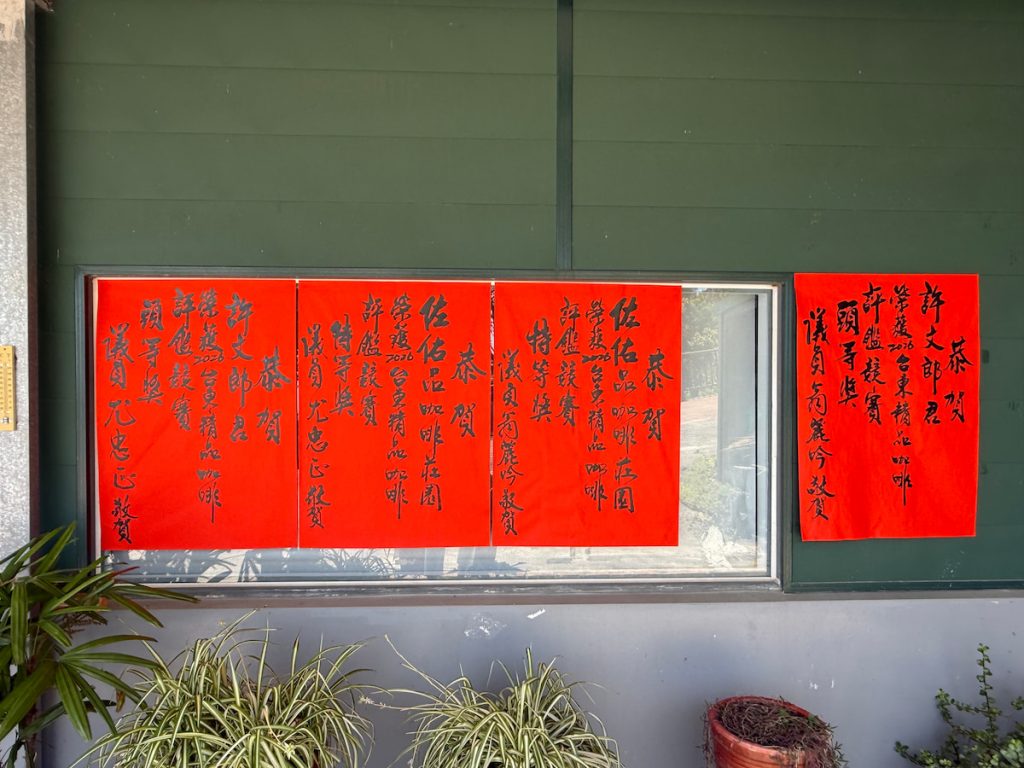 恭賀
許文郎君
榮獲2026台東精品咖啡
評鑑競賽
頭等獎
議員翁麗吟敬賀
恭賀
佐佑品咖啡莊園
榮獲2026台東精品咖啡
評鑑競賽
特等獎
議員翁麗吟敬賀
恭賀
佐佑品咖啡莊園
榮獲2026台東精品咖啡
評鑑競賽
特等獎
議員尤忠正敬賀
恭賀
許文郎君
榮獲2026台東精品咖啡
評鑑競賽
頭等獎
議員尤忠正敬賀